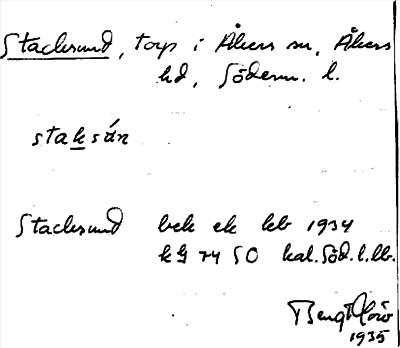 Stacksund, torp i Åkers sn, Åkers
hd, Söderm. l.
staksán
Stacksund bek ek kb 1934
kg 74 S0 kal. Söd. l. lb.
Bengt
1935